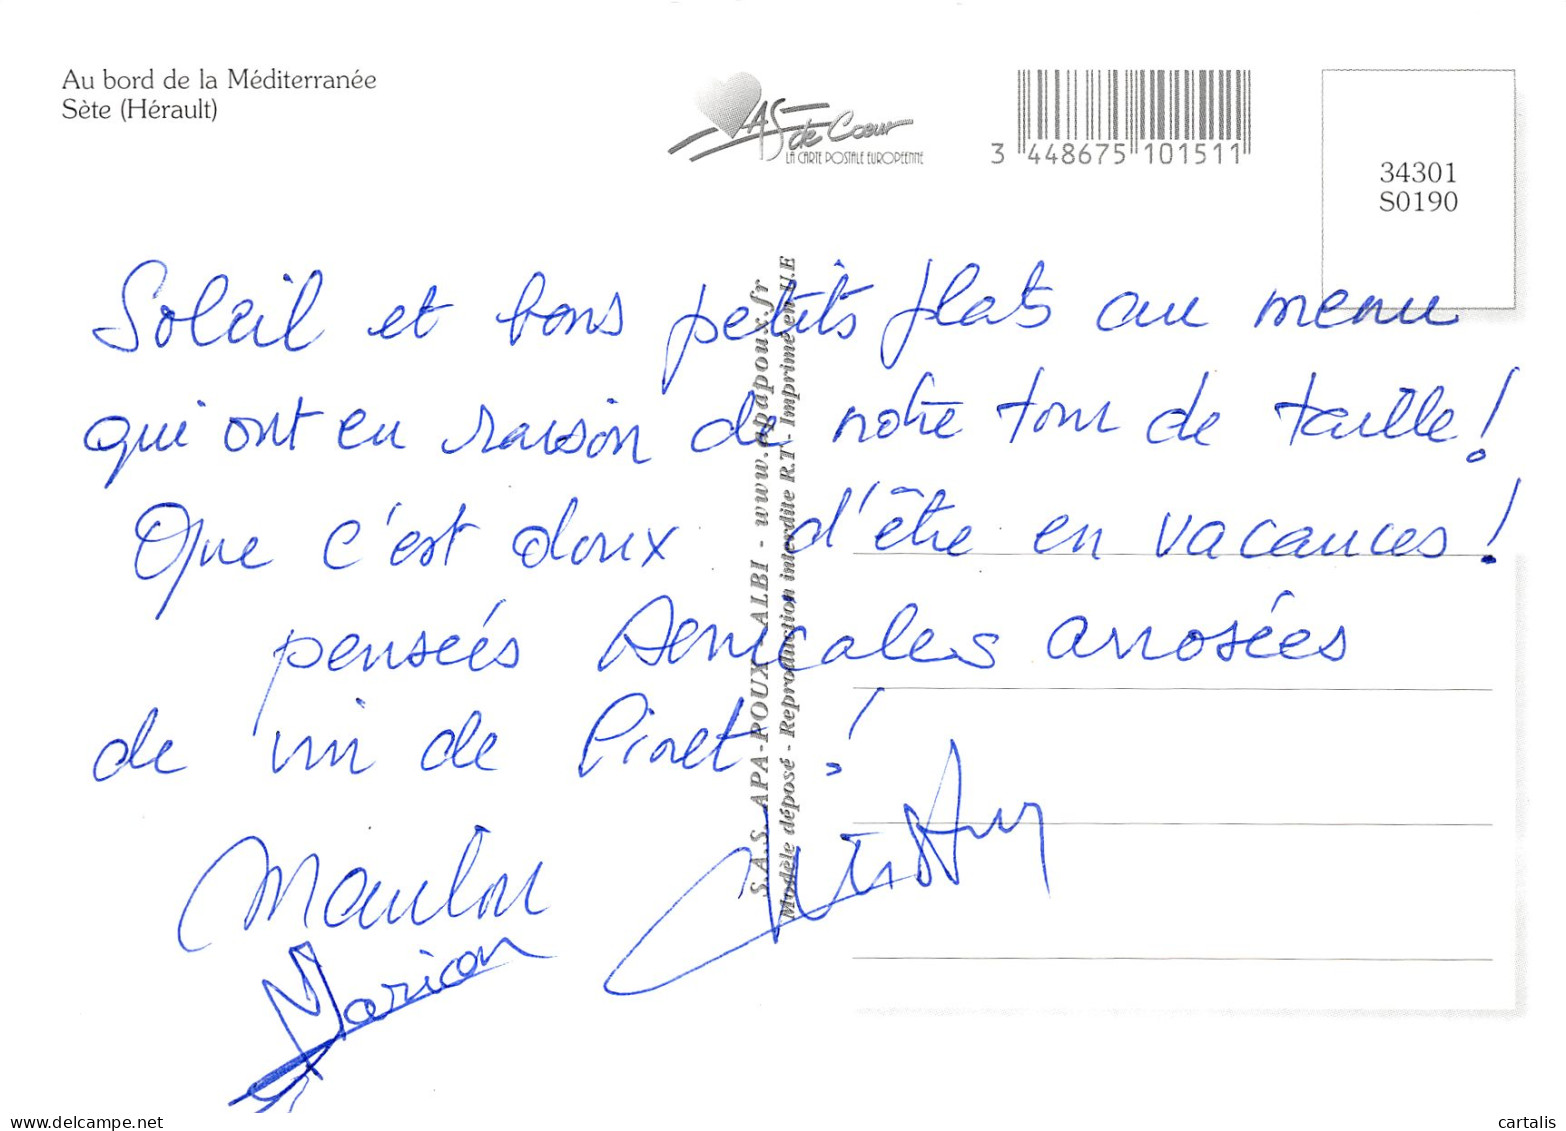 Au bord de la Méditerranée
Sète (Hérault)
AS de Cœur
LA CARTE POSTALE EUROPEENNE
3 448675 101511
34301
S0190
Soleil et bons petits plats au menu
qui ont eu raison de notre tour de taille !
Que c'est doux d'être en vacances !
pensées amicales arrosées
de vin de Pinet !
Marion
S.A.S. APA-POUX ALBI - www.apapoux.fr
Modèle déposé - Reproduction interdite R.T - Imprimé en U.E
delcampe.net
cartalis